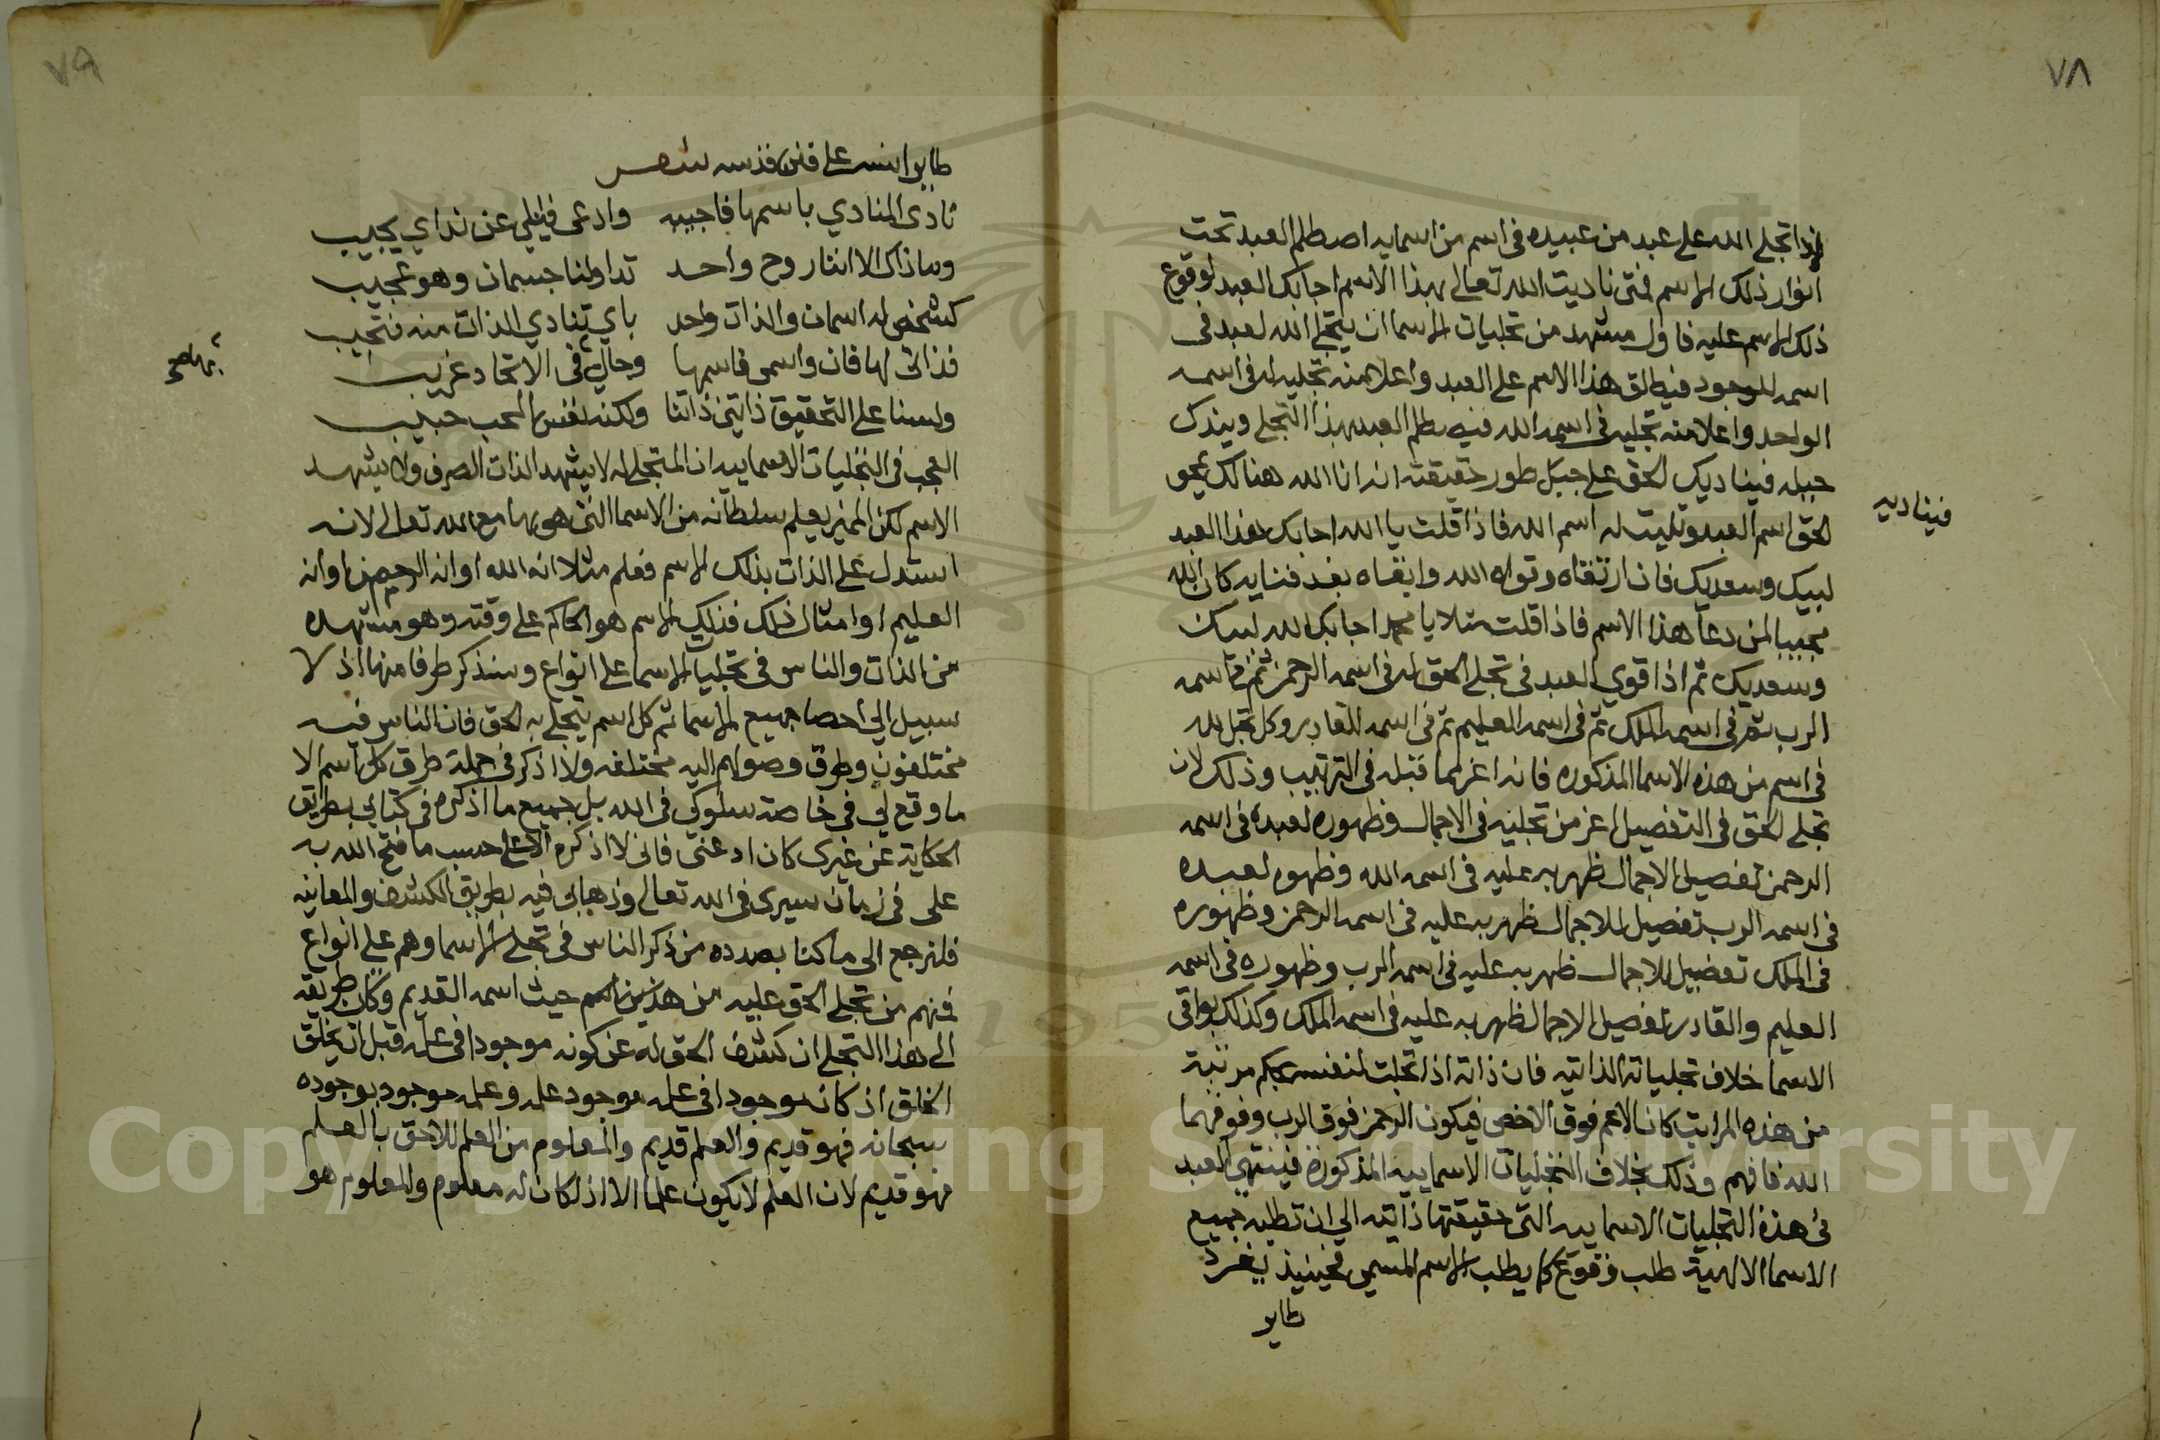 ٧٨
اذا تجلى الله على عبد من عبيده في اسم من اسمايه اصطلم العبد تحت
انوار ذلك الاسم فمتى ناديت الله تعالى بهذا الاسم اجابك العبد لوقوع
ذلك الاسم عليه فاول مشهد من تجليات الاسما ان يتجلى الله لعبد في
اسمه الموجود فيطلق هذا الاسم على العبد واعلا منه تجليه له في اسمه
الواحد واعلا منه تجليه في اسمه الله فيصطلم العبد بهذا التجلي ويندك
جبله فيناديك الحق على جبل طور حقيقته انه انا الله هنالك يمحو
فيناديه
الحق اسم العبد ويثبت له اسم الله فاذا قلت يا الله اجابك هذا العبد
لبيك وسعديك فان ارتقاه وقواه الله وابقاه بعد فنايه كان الله
مجيبا لمن دعا هذا الاسم فاذا قلت مثلا يا محمد اجابك الله لبيك
وسعديك ثم اذا قوي العبد في تجلي الحق له في اسمه الرحمن ثم في اسمه
الرب ثم في اسمه الملك ثم في اسمه العليم ثم في اسمه القادر وكل تجل لله
في اسم من هذه الاسما المذكوره فانه اعز لما قبله في الترتيب وذلك لان
تجلي الحق في التفصيل اعز من تجليه في الاجمال فظهوره لعبده في اسمه
الرحمن تفصيل لاجمال ظهر به عليه في اسمه الله وظهوره لعبده
في اسمه الرب تفصيل للاجمال ظهر به عليه في اسمه الرحمن وظهوره
في الملك تفصيل للاجمال ظهر به عليه في اسمه الرب وظهوره في اسمه
العليم والقادر تفصيل لاجمال ظهر به عليه في اسمه الملك وكذلك بواقي
الاسما خلاف تجلياته الذاتيه فان ذاته اذا تجلت لنفسه بحكم مرتبة
من هذه المراتب كان الاعم فوق الاخص فيكون الرحمن فوق الرب وفوقهما
الله فافهم وذلك بخلاف التجليات الاسماييه المذكورة فينتهي العبد
في هذه التجليات الاسماييه التي حقيقتها ذاتيه الى ان تطلبه جميع
الاسما الالهية طلب وقوع كما يطلب الاسم المسمى فحينيذ يغرد
طاير
٧٩
طاير انسه على فنن قدسه شعر
نادى المنادي باسمها فاجيبه وادعى فليلى عن نداي يجيب
وما ذاك الا اننا روح واحد تداولنا جسمان وهو عجيب
كشخص له اسمان والذات واحد باي تنادي الذات منه تجيب
فذاتي لها فان واسمى فاسمها وحالي في الاتحاد غريب
بها صح
ولسنا على التحقيق ذاتي ذاتنا ولكنه نفس المحب حبيب
العجب في التجليات الاسماييه ان المتجلى له لا يشهد الذات الصرف ولا يشهد
الاسم لكن المميز يعلم سلطانه من الاسما التي هو بها مع الله تعالى لانه
استدل على الذات بذلك الاسم فعلم مثلا انه الله او انه الرحمن او انه
العليم او امثال ذلك فذلك الاسم هو الحاكم على وقته وهو مشهده
من الذات والناس في تجليات الاسما على انواع وسنذكر طرفا منها اذ لا
سبيل الى احصا جميع الاسما ثم كل اسم يتجلى به الحق فان الناس فيه
مختلفون وطرق وصولهم اليه مختلفه ولا اذكر في جملة طرق كل اسم الا
ما وقع لي في خاصة سلوكي في الله بل جميع ما اذكره في كتابي بطريق
الحكاية عن غيرى كان او عني فاني لا اذكره الا على حسب ما فتح الله به
على في زمان سيرى في الله تعالى وذهابي فيه بطريق الكشف والمعاينه
فلنرجع الى ما كنا بصدده من ذكر الناس في تجلي الاسما وهم على انواع
فمنهم من تجلى الحق عليه من حيث اسمه القديم وكان طريقه
الى هذا التجلي ان كشف الحق له عن كونه موجودا في علمه قبل ان يخلق
الخلق اذ كان موجودا في علمه موجود علمه وعلمه موجود بوجوده
سبحانه فهو قديم والعلم قديم والمعلوم من العلم لاحق بالعلم
فهو قديم لان العلم لا يكون علما الا اذا كان له معلوم والمعلوم هو
Copyright © King Saud University